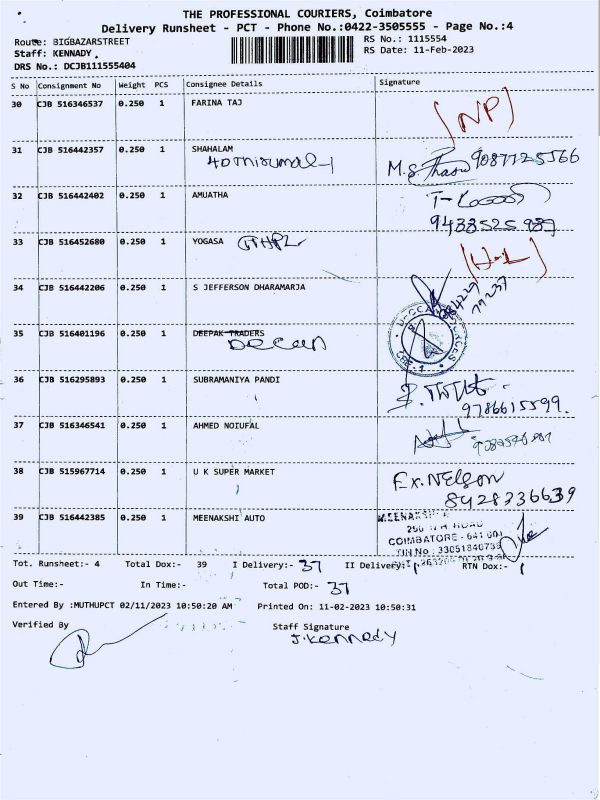 THE PROFESSIONAL COURIERS, Coimbatore
Delivery Runsheet - PCT - Phone No.:0422-3505555 - Page No.:4
Route: BIGBAZARSTREET RS No.: 1115554
Staff: KENNADY . RS Date: 11-Feb-2023
DRS No.: DCJB111555404
S No Consignment No Weight PCS Consignee Details Signature
30 CJB 516346537 0.250 1 FARINA TAJ (NP)
31 CJB 516442357 0.250 1 SHAHALAM
M.S 9087725566
32 CJB 516442402 0.250 1 AMUATHA
9433525987
33 CJB 516452680 0.250 1 YOGASA GTHPL (H-L)
34 CJB 516442206 0.250 1 S JEFFERSON DHARAMARJA
35 CJB 516401196 0.250 1 DEEPAK TRADERS
Deccan
36 CJB 516295893 0.250 1 SUBRAMANIYA PANDI
9786615599.
37 CJB 516346541 0.250 1 AHMED NOIUFAL
38 CJB 515967714 0.250 1 U K SUPER MARKET Ex. Nelson
8428336639
39 CJB 516442385 0.250 1 MEENAKSHI AUTO
COIMBATORE - 641 001
TIN No : 33051840739
Tot. Runsheet:- 4 Total Dox:- 39 I Delivery:- 37 II Delivery:- RTN Dox:-
Out Time:- In Time:- Total POD:- 37
Entered By :MUTHUPCT 02/11/2023 10:50:20 AM Printed On: 11-02-2023 10:50:31
Verified By Staff Signature
J. Kennedy